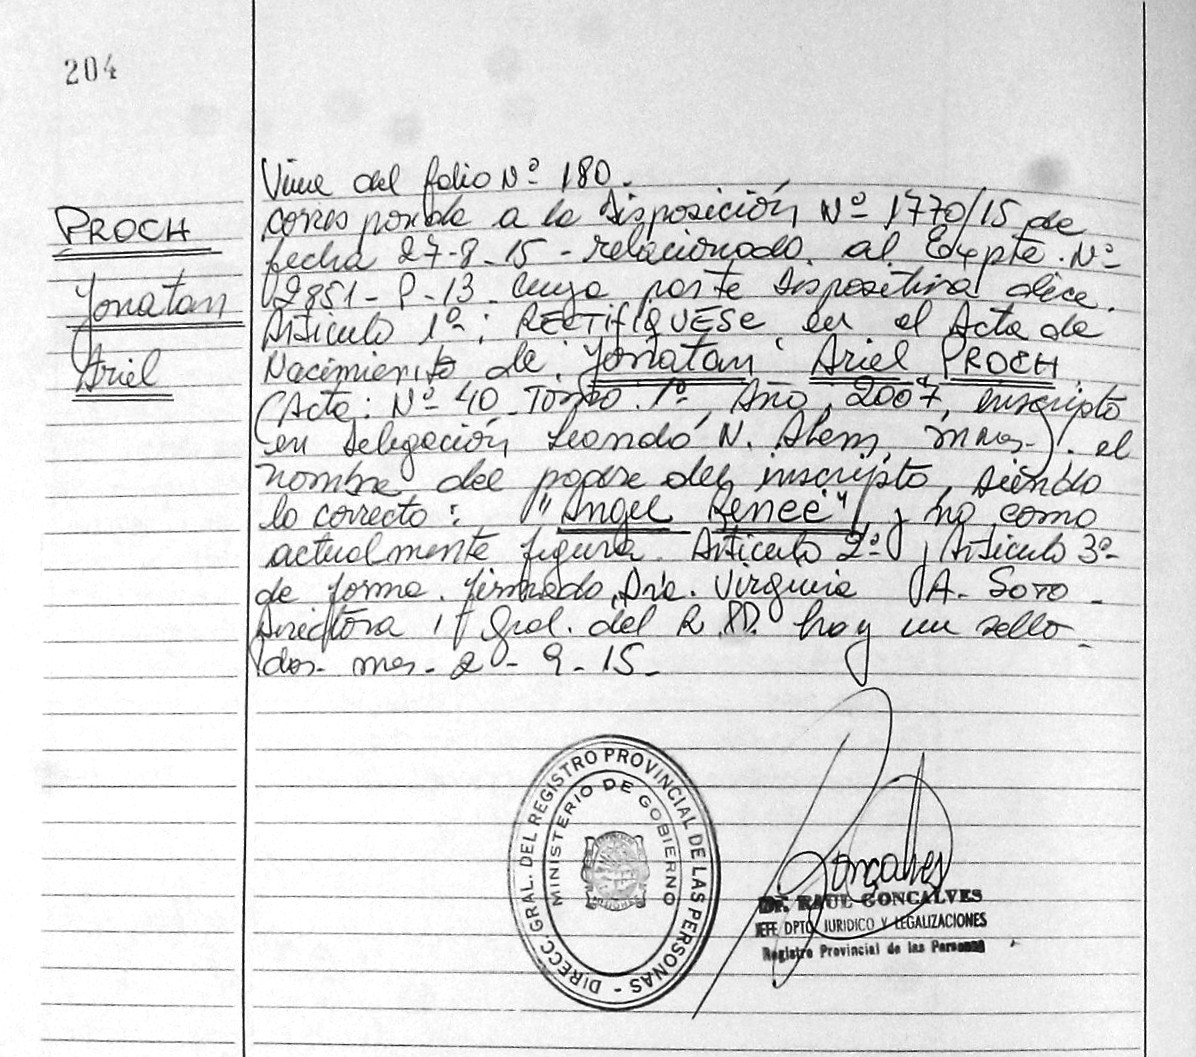 204
PROCH
Yonatan
Ariel
Viene del folio Nº 180.
corresponde a la Disposición Nº 1770/15 de
fecha 27-8-15 - relacionado al Expte. Nº
2851-P-13. cuya parte dispositiva dice.
Articulo 1º: RECTIFIQUESE en el Acta de
Nacimiento de Yonatan Ariel PROCH
(Acta: Nº 40 Tomo 1º, Año 2007, inscripto
en Delegación Leandro N. Alem, mnes-). el
nombre del padre del inscripto, siendo
lo correcto: "Angel Renee" y no como
actualmente figura. Articulo 2º y Articulo 3º-
de forma. firmado, Dra. Virginia A. Soto -
Directora Gral. del R.P.P. hay un sello
Pdas. mnes. 2 - 9 - 15.-
DIRECC. GRAL. DEL REGISTRO PROVINCIAL DE LAS PERSONAS -
MINISTERIO DE GOBIERNO
Goncalves
Dr. RAUL GONCALVES
JEFE DPTO. JURIDICO Y LEGALIZACIONES
Registro Provincial de las Personas